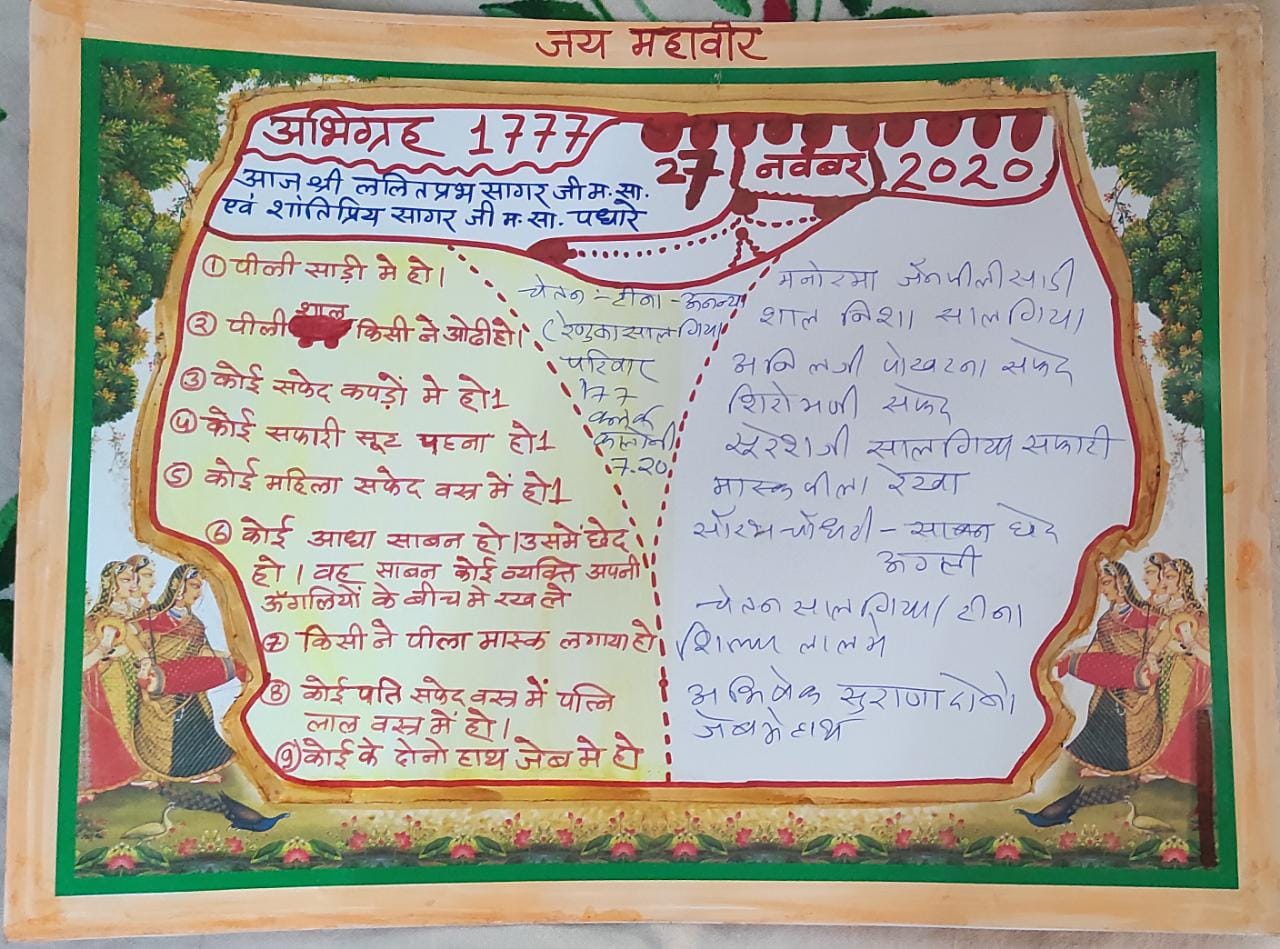 जय महावीर
अभिग्रह 1777
27 नवंबर 2020
आज श्री ललितप्रभ सागर जी म. सा.
एवं शांतिप्रिय सागर जी म. सा. पधारे
① पीली साड़ी मे हो।
② पीली शाल किसी ने ओढी हो।
③ कोई सफेद कपड़ों मे हो।
④ कोई सफारी सूट पहना हो।
⑤ कोई महिला सफेद वस्त्र में हो।
⑥ कोई आधा साबन हो। उसमें छेद
हो। वह साबन कोई व्यक्ति अपनी
ऊँगलियों के बीच मे रख ले
⑦ किसी ने पीला मास्क लगाया हो
⑧ कोई पति सफेद वस्त्र में पत्नि
लाल वस्त्र में हो।
⑨ कोई के दोनो हाथ जेब मे हो
चेतन - टीना - अनन्या
(रेणुका सालगिया
परिवार
177
कालोनी
7.20
मनोरमा जैन पीली साडी
शाल निशा सालगिया
अनिलजी पोखरना सफेद
शिरोमणी सफेद
सुरेशजी सालगिया सफारी
मास्क पीला रेखा
सौरभ चौधरी - साबन छेद
चेतन सालगिया / टीना
शिल्पा लाल मे
अभिषेक सुराणा दोनो
जेब मे हाथ